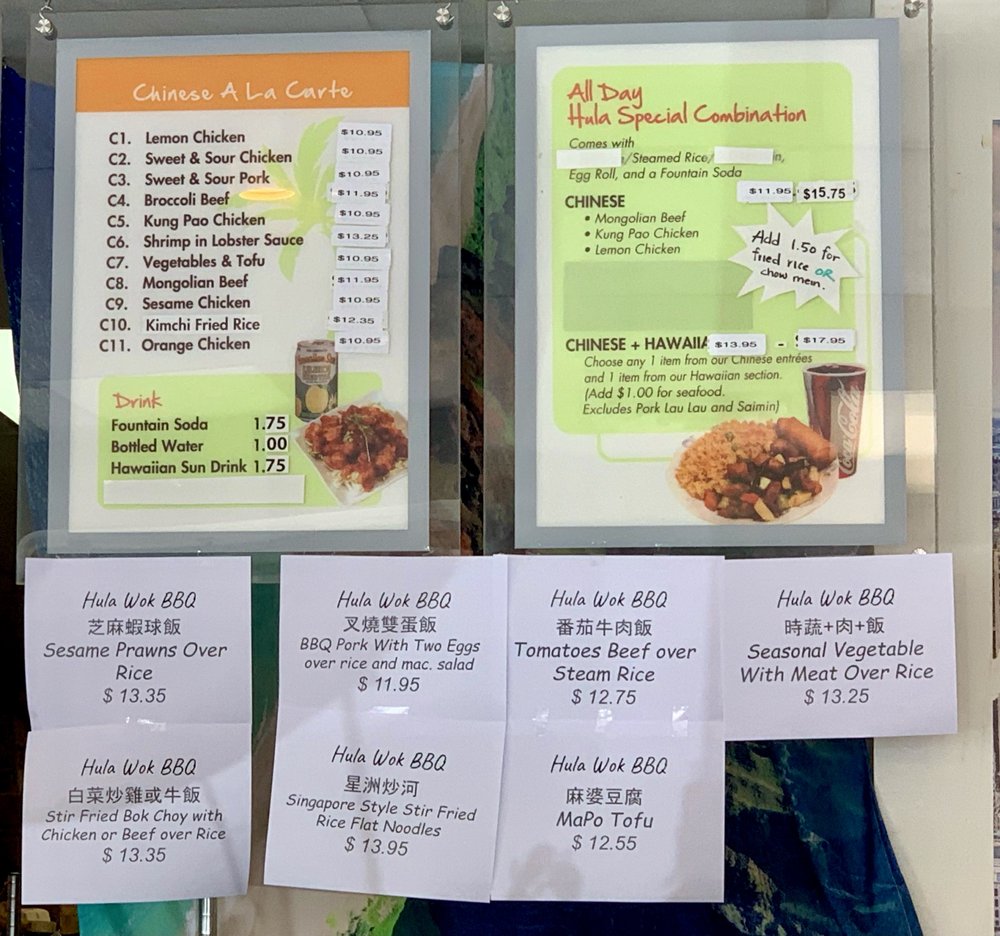 Chinese A La Carte
C1. Lemon Chicken $10.95
C2. Sweet & Sour Chicken $10.95
C3. Sweet & Sour Pork $10.95
C4. Broccoli Beef $11.95
C5. Kung Pao Chicken $10.95
C6. Shrimp in Lobster Sauce $13.25
C7. Vegetables & Tofu $10.95
C8. Mongolian Beef $11.95
C9. Sesame Chicken $10.95
C10. Kimchi Fried Rice $12.35
C11. Orange Chicken $10.95
Drink
Fountain Soda 1.75
Bottled Water 1.00
Hawaiian Sun Drink 1.75
All Day
Hula Special Combination
Comes with
/Steamed Rice/
Egg Roll, and a Fountain Soda
$11.95 - $15.75
CHINESE
• Mongolian Beef
• Kung Pao Chicken
• Lemon Chicken
Add 1.50 for
fried rice OR
chow mein.
CHINESE + HAWAIIA $13.95 - $17.95
Choose any 1 item from our Chinese entrées
and 1 item from our Hawaiian section.
(Add $1.00 for seafood.
Excludes Pork Lau Lau and Saimin)
Coca-Cola
Hula Wok BBQ
芝麻蝦球飯
Sesame Prawns Over
Rice
$ 13.35
Hula Wok BBQ
叉燒雙蛋飯
BBQ Pork With Two Eggs
over rice and mac. salad
$ 11.95
Hula Wok BBQ
番茄牛肉飯
Tomatoes Beef over
Steam Rice
$ 12.75
Hula Wok BBQ
時蔬+肉+飯
Seasonal Vegetable
With Meat Over Rice
$ 13.25
Hula Wok BBQ
白菜炒雞或牛飯
Stir Fried Bok Choy with
Chicken or Beef over Rice
$ 13.35
Hula Wok BBQ
星洲炒河
Singapore Style Stir Fried
Rice Flat Noodles
$ 13.95
Hula Wok BBQ
麻婆豆腐
MaPo Tofu
$ 12.55